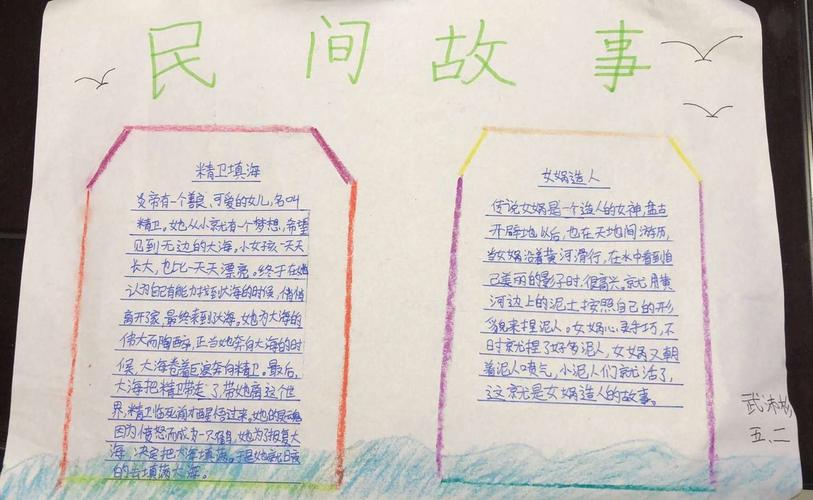 民间故事
精卫填海
炎帝有一个善良、可爱的女儿,名叫
精卫。她从小就有一个梦想,希望
见到无边的大海。小女孩一天天
长大,也比一天天漂亮。终于在她
认为自己有能力找到大海的时候,悄悄
离开了家,最终来到大海。她为大海的
伟大而陶醉,正当她奔向大海的时
候,大海卷着巨浪奔向精卫。最后,
大海把精卫带走了,带她离这个世
界,精卫临死前才醒悟过来。她的灵魂
因为愤怒而成为一只鸟,她为了报复大
海,决定把大海填满。于是她就日夜
的去填满大海。
女娲造人
传说女娲是一个造人的女神,盘古
开辟地以后,也在天地间游历,
当女娲沿着黄河滑行,在水中看到自
己美丽的影子时,很高兴。就用黄
河边上的泥土按照自己的形
貌来捏泥人。女娲心灵手巧,不
时就捏了好多泥人,女娲又朝
着泥人喷气,小泥人们就活了,
这就是女娲造人的故事。
武沐
五、二